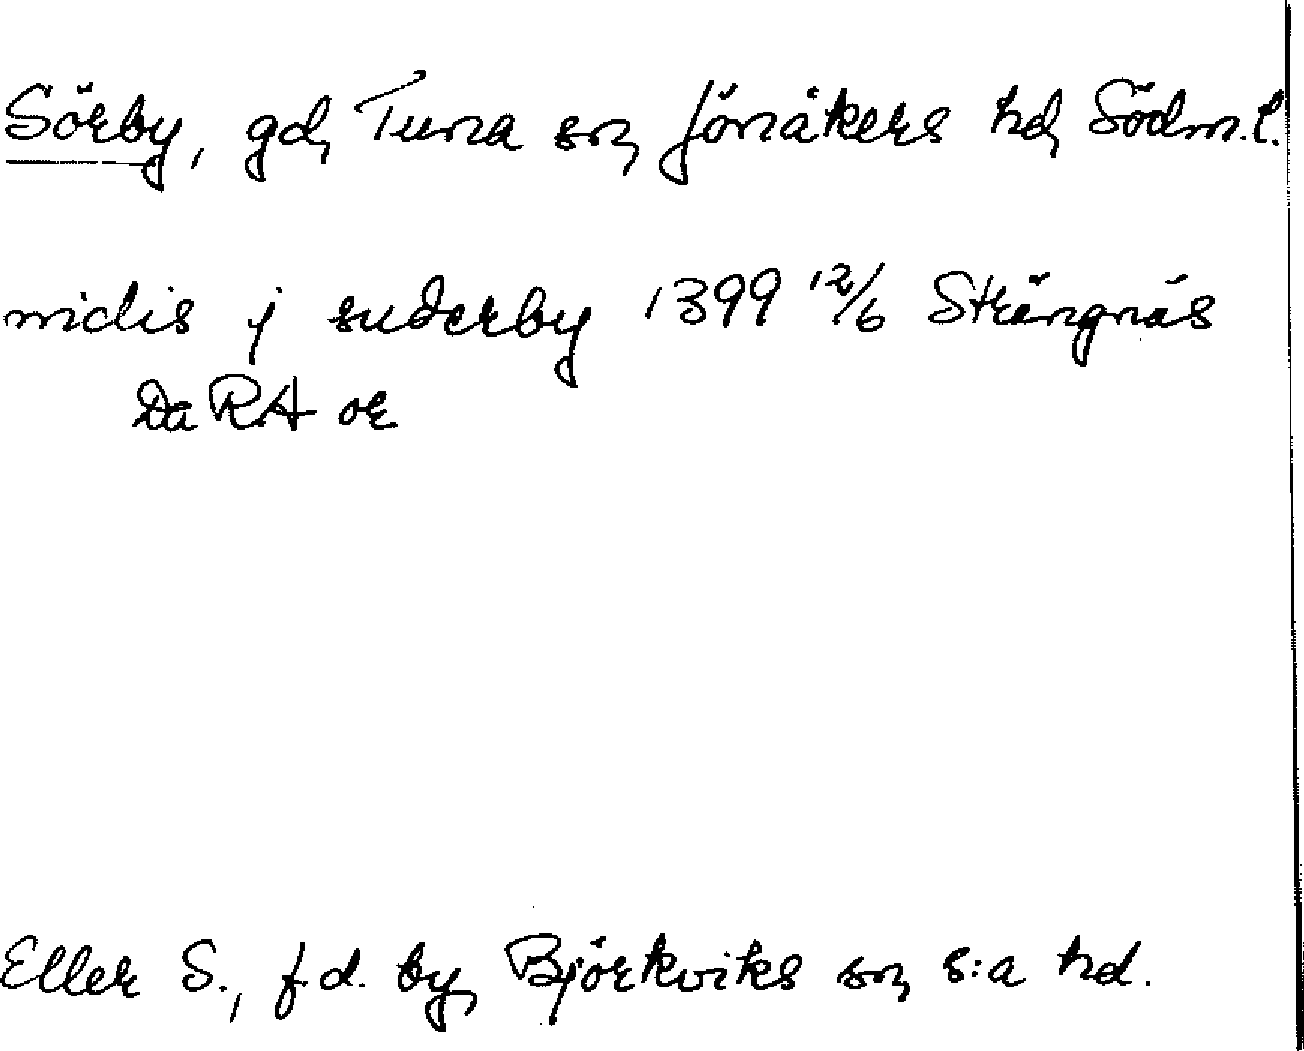 Sörby, gd, Tuna sn, Jönåkers hd, Södm.l.
nidis j suderby 1399 12/6 Strängnäs
Da RA or
Eller S., f.d. by, Björkviks sn, s:a hd.